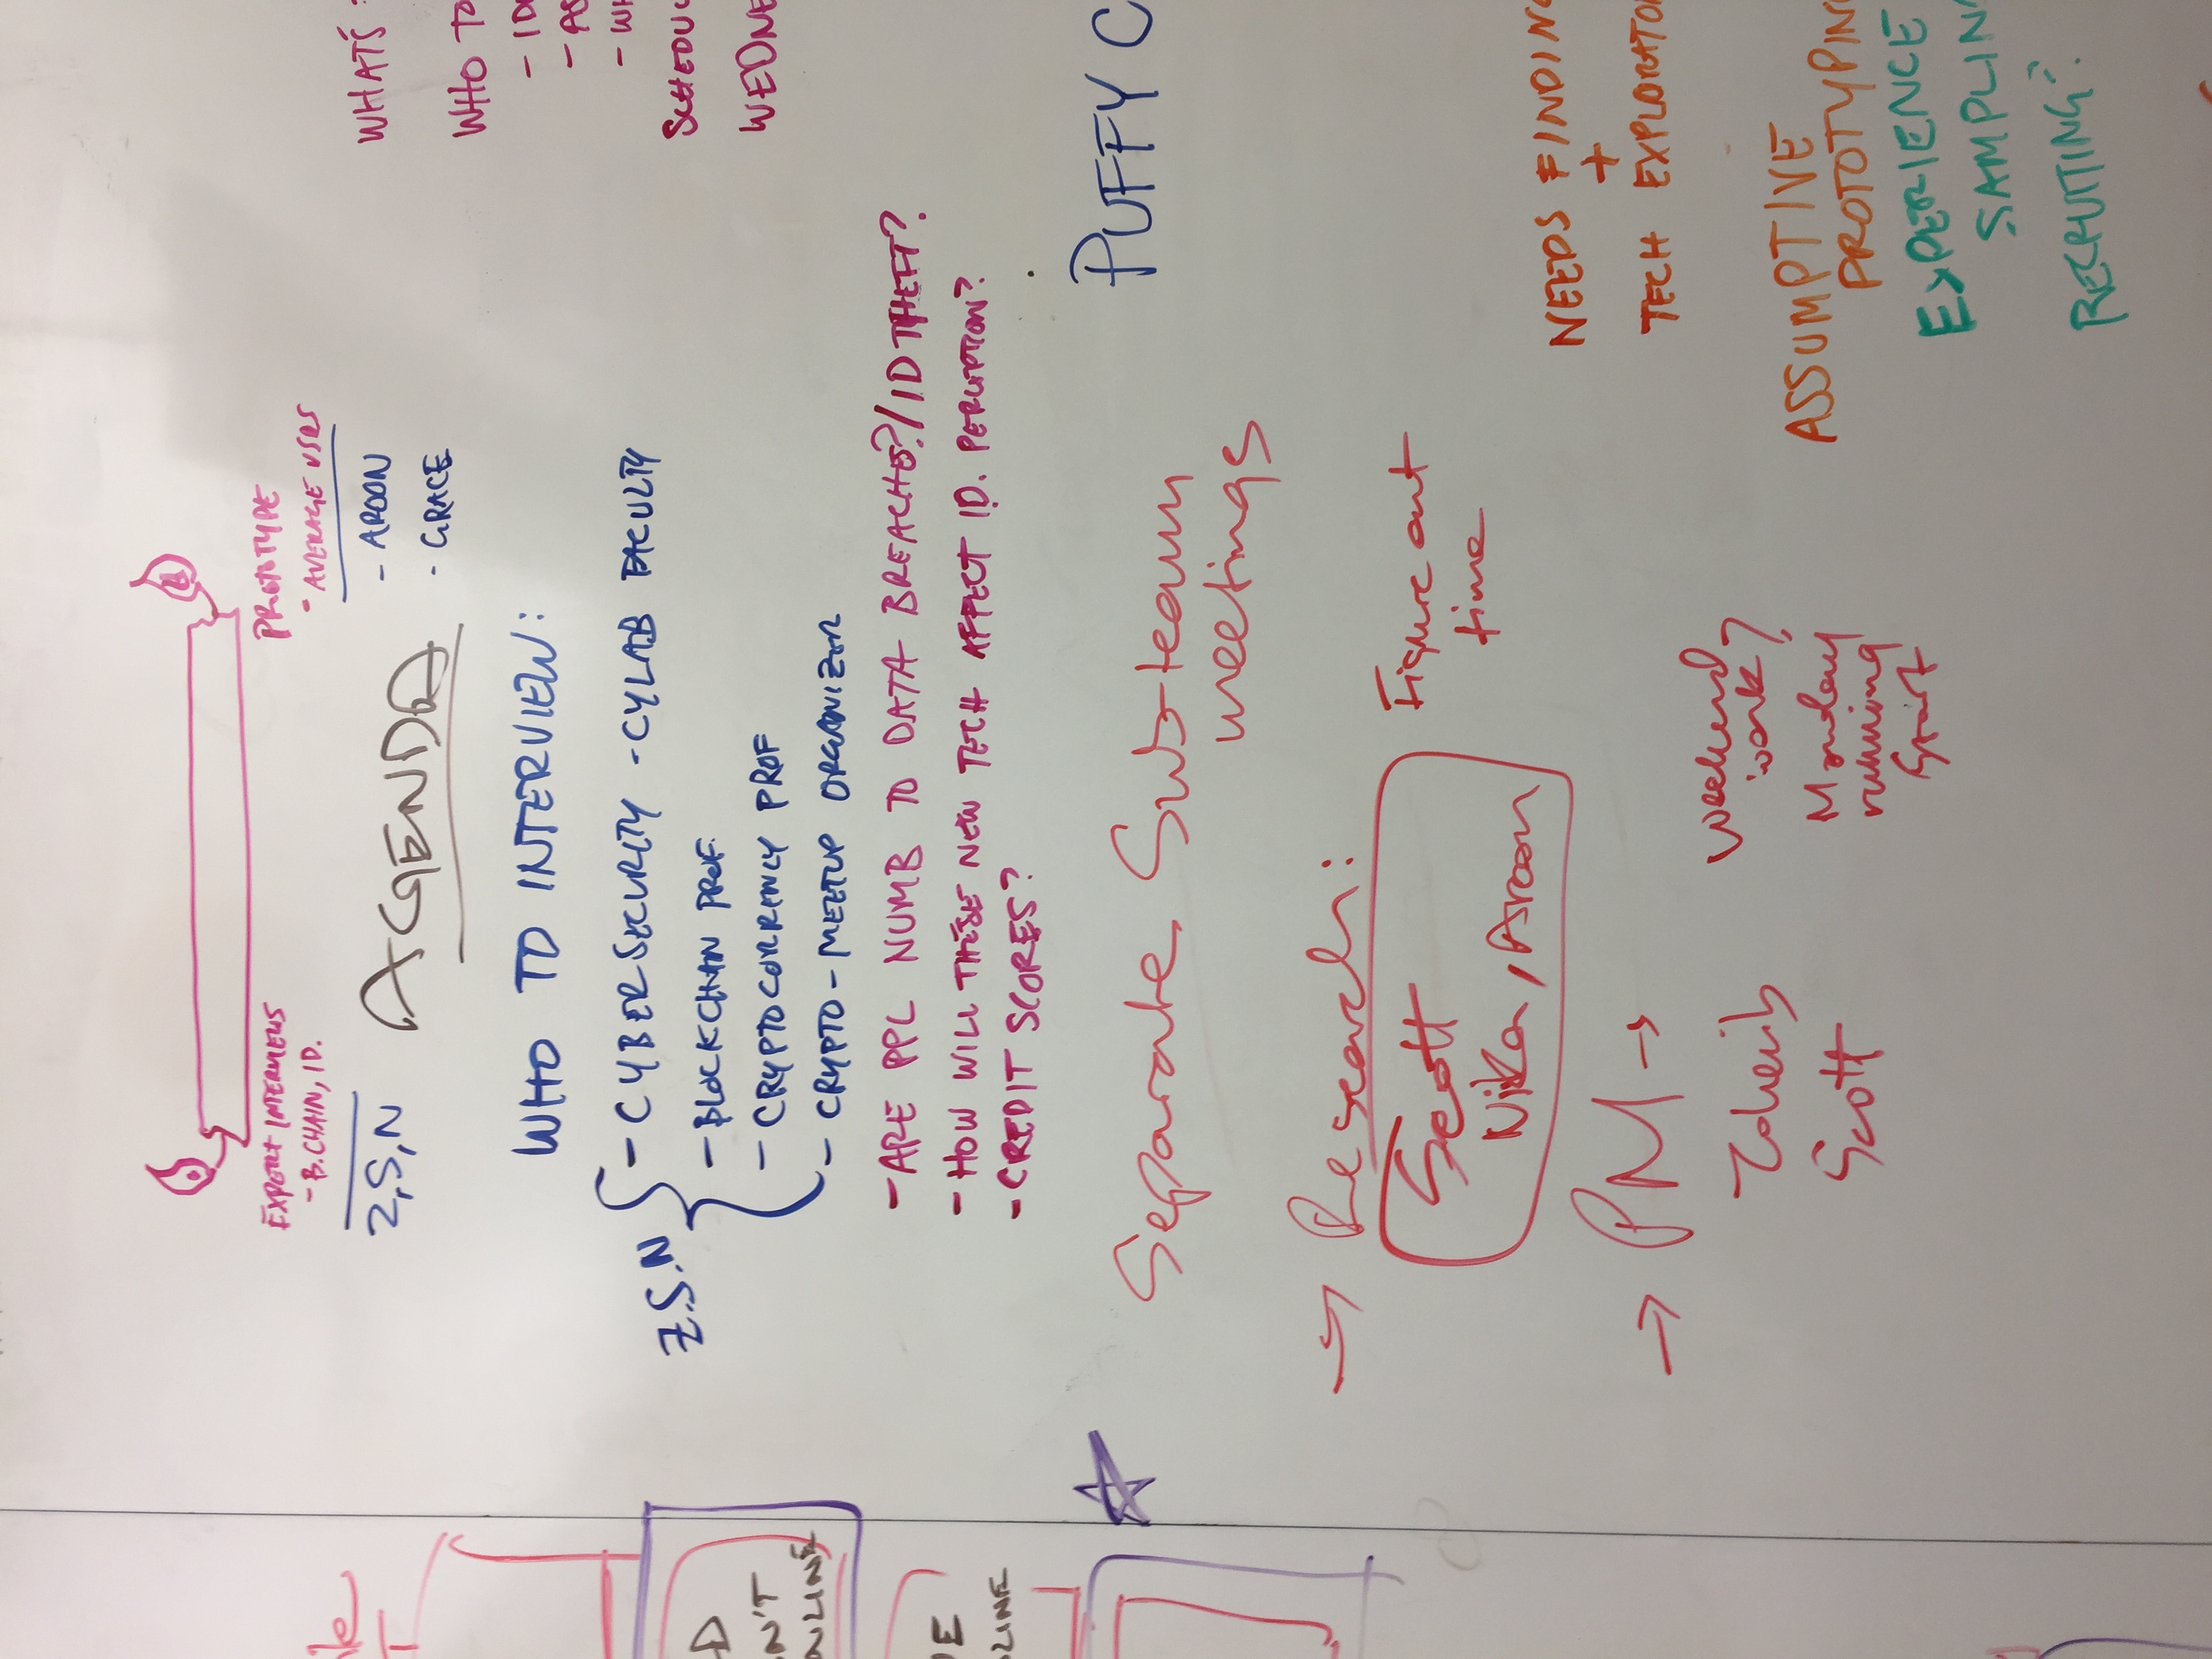 EXPERT INTERVIEWS
- B.CHAIN, ID.
Z,S,N
PROTOTYPE
- AVERAGE USRS
- AROON
- GRACE
AGENDA
WHO TO INTERVIEW:
Z.S.N
- CYBERSECURITY - CYLAB FACULTY
- BLOCKCHAIN PROF.
- CRYPTOCURRENCY PROF
- CRYPTO-MEETUP ORGANIZER
- ARE PPL NUMB TO DATA BREACHES?/ID THEFT?
- HOW WILL THESE NEW TECH AFFECT ID. PERCEPTION?
- CREDIT SCORES?
Separate Sub-team
meetings
→ Research:
Scott
Nika, Aroon
Figure out
time
→ PM →
Zoheib
Scott
Weekend
work?
Monday
running
start
N'T
NLINE
WHAT'S
WHO TO
- ID
- AS
- WH
SCHEDU
WEDNE
PUFFY C
NEEDS FINDING
+
TECH EXPLORATO
ASSUMPTIVE
PROTOTYPING
EXPERIENCE
SAMPLIN
RECRUITING?